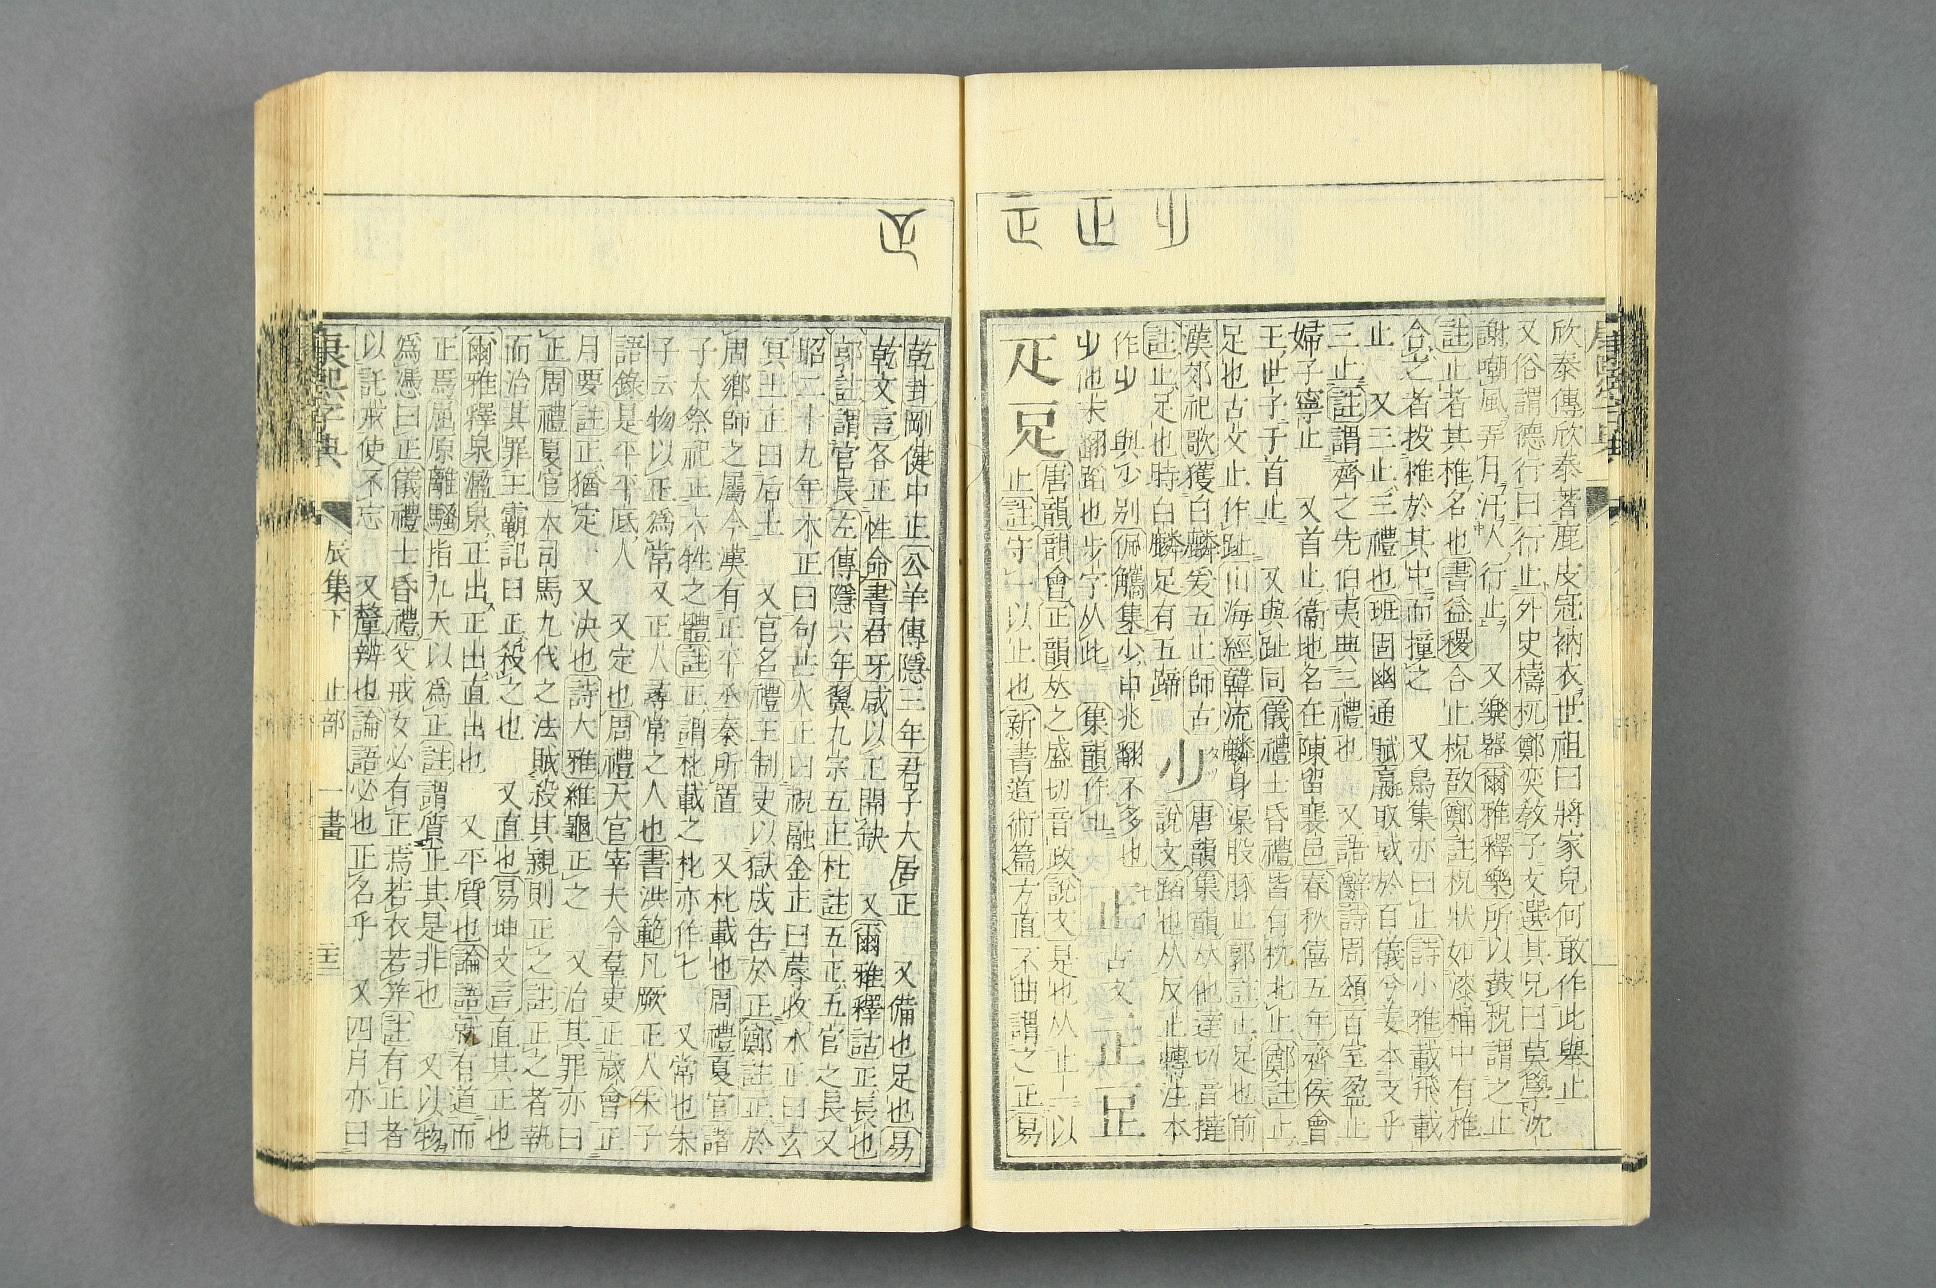 欣泰傳欣泰著鹿皮冠衲衣世祖曰將家兒何敢作此舉止
又俗謂德行曰行止外史檮杌鄭奕敎子文選其兄曰莫學沈
謝嘲風弄月汙人行止 又樂器爾雅釋樂所以鼓柷謂之止
註止者其椎名也書益稷合止柷敔鄭註柷狀如漆桶中有椎
合之者投椎於其中而撞之 又鳥集亦曰止詩小雅載飛載
止 又三止三禮也班固幽通賦嬴取威於百儀兮姜本支乎
三止註謂齊之先伯夷典三禮也 又語辭詩周頌百室盈止
婦子寧止 又首止衞地名在陳留襄邑春秋僖五年齊侯會
王世子于首止 又與趾同儀禮士昏禮皆有枕北止鄭註止
足也古文止作趾山海經韓流麟身渠股豚止郭註止足也前
漢郊祀歌獲白麟爰五止師古
註止足也時白麟足有五蹄
少
唐韻集韻𠀤他達切音撻
說文蹈也从反止轉注本
作𣥂 與少别佩觿集少申兆翻不多也
𣥂他末翻蹈也步字从此 集韻作𣥂
正
古文
𤴓 𤴔
唐韻韻會正韻𠀤之盛切音政說文是也从止一以
止註守一以止也新書道術篇方直不曲謂之正易
乾卦剛健中正公羊傳隱三年君子大居正 又備也足也易
乾文言各正性命書君牙咸以正罔缺 又爾雅釋詁正長也
郭註謂官長左傳隱六年翼九宗五正杜註五正五官之長又
昭二十九年木正曰句芒火正曰祝融金正曰蓐收水正曰玄
冥土正曰后土 又官名禮王制史以獄成告於正鄭註正於
周鄉師之屬今漢有正平丞秦所置 又朼載也周禮夏官諸
子大祭祀正六牲之體註正謂朼載之朼亦作匕 又常也朱
子云物以正爲常又正人尋常之人也書洪範凡厥正人朱子
語錄是平平底人 又定也周禮天官宰夫令羣吏正歲會正
月要註正猶定 又決也詩大雅維龜正之 又治其罪亦曰
正周禮夏官大司馬九伐之法賊殺其親則正之註正之者執
而治其罪王霸記曰正殺之也 又直也易坤文言直其正也
爾雅釋泉濫泉正出正出直出也 又平質也論語就有道而
正焉屈原離騷指九天以爲正註謂質正其是非也 又以物
爲憑曰正儀禮士昏禮父戒女必有正焉若衣若笄註有正者
以託戒使不忘 又釐辨也論語必也正名乎 又四月亦曰
康熙字典
辰集下 止部 一畫